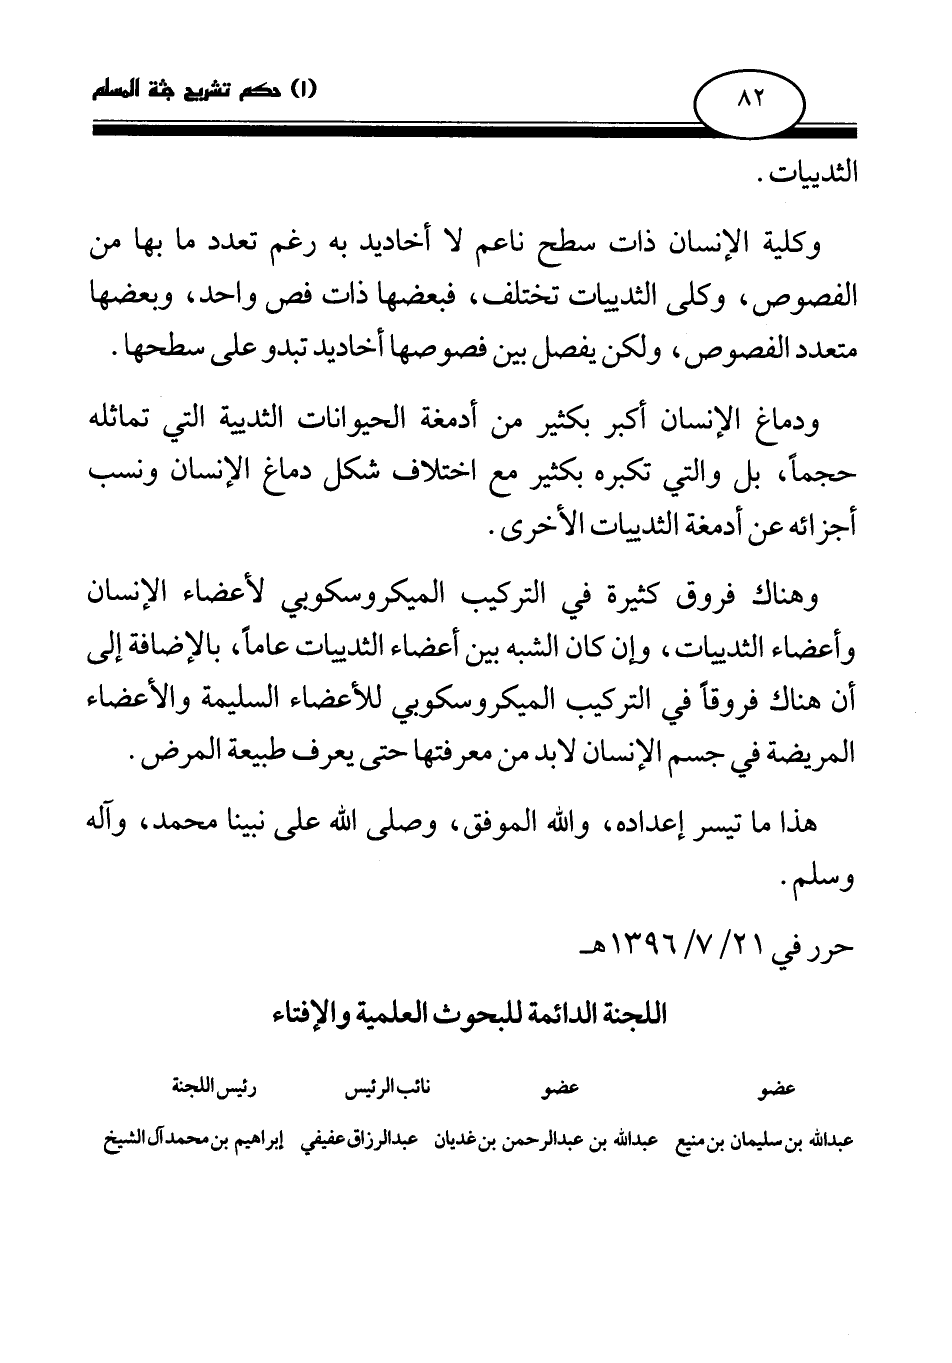 (١) حكم تشريح جثة المسلم
٨٢
الثدييات .
وكلية الإنسان ذات سطح ناعم لا أخاديد به رغم تعدد ما بها من
الفصوص، وكلى الثدييات تختلف، فبعضها ذات فص واحد، وبعضها
متعدد الفصوص، ولكن يفصل بين فصوصها أخاديد تبدو على سطحها .
ودماغ الإنسان أكبر بكثير من أدمغة الحيوانات الثديية التي تماثله
حجماً، بل والتي تكبره بكثير مع اختلاف شكل دماغ الإنسان ونسب
أجزائه عن أدمغة الثدييات الأخرى .
وهناك فروق كثيرة في التركيب الميكروسكوبي لأعضاء الإنسان
وأعضاء الثدييات، وإن كان الشبه بين أعضاء الثدييات عاماً، بالإضافة إلى
أن هناك فروقاً في التركيب الميكروسكوبي للأعضاء السليمة والأعضاء
المريضة في جسم الإنسان لابد من معرفتها حتى يعرف طبيعة المرض .
هذا ما تيسر إعداده، والله الموفق، وصلى الله على نبينا محمد، وآله
وسلم .
حرر في ٢١/ ٧/ ١٣٩٦هـ
اللجنة الدائمة للبحوث العلمية والإفتاء
عضو عضو نائب الرئيس رئيس اللجنة
عبدالله بن سليمان بن منيع عبدالله بن عبدالرحمن بن غديان عبدالرزاق عفيفي إبراهيم بن محمد آل الشيخ